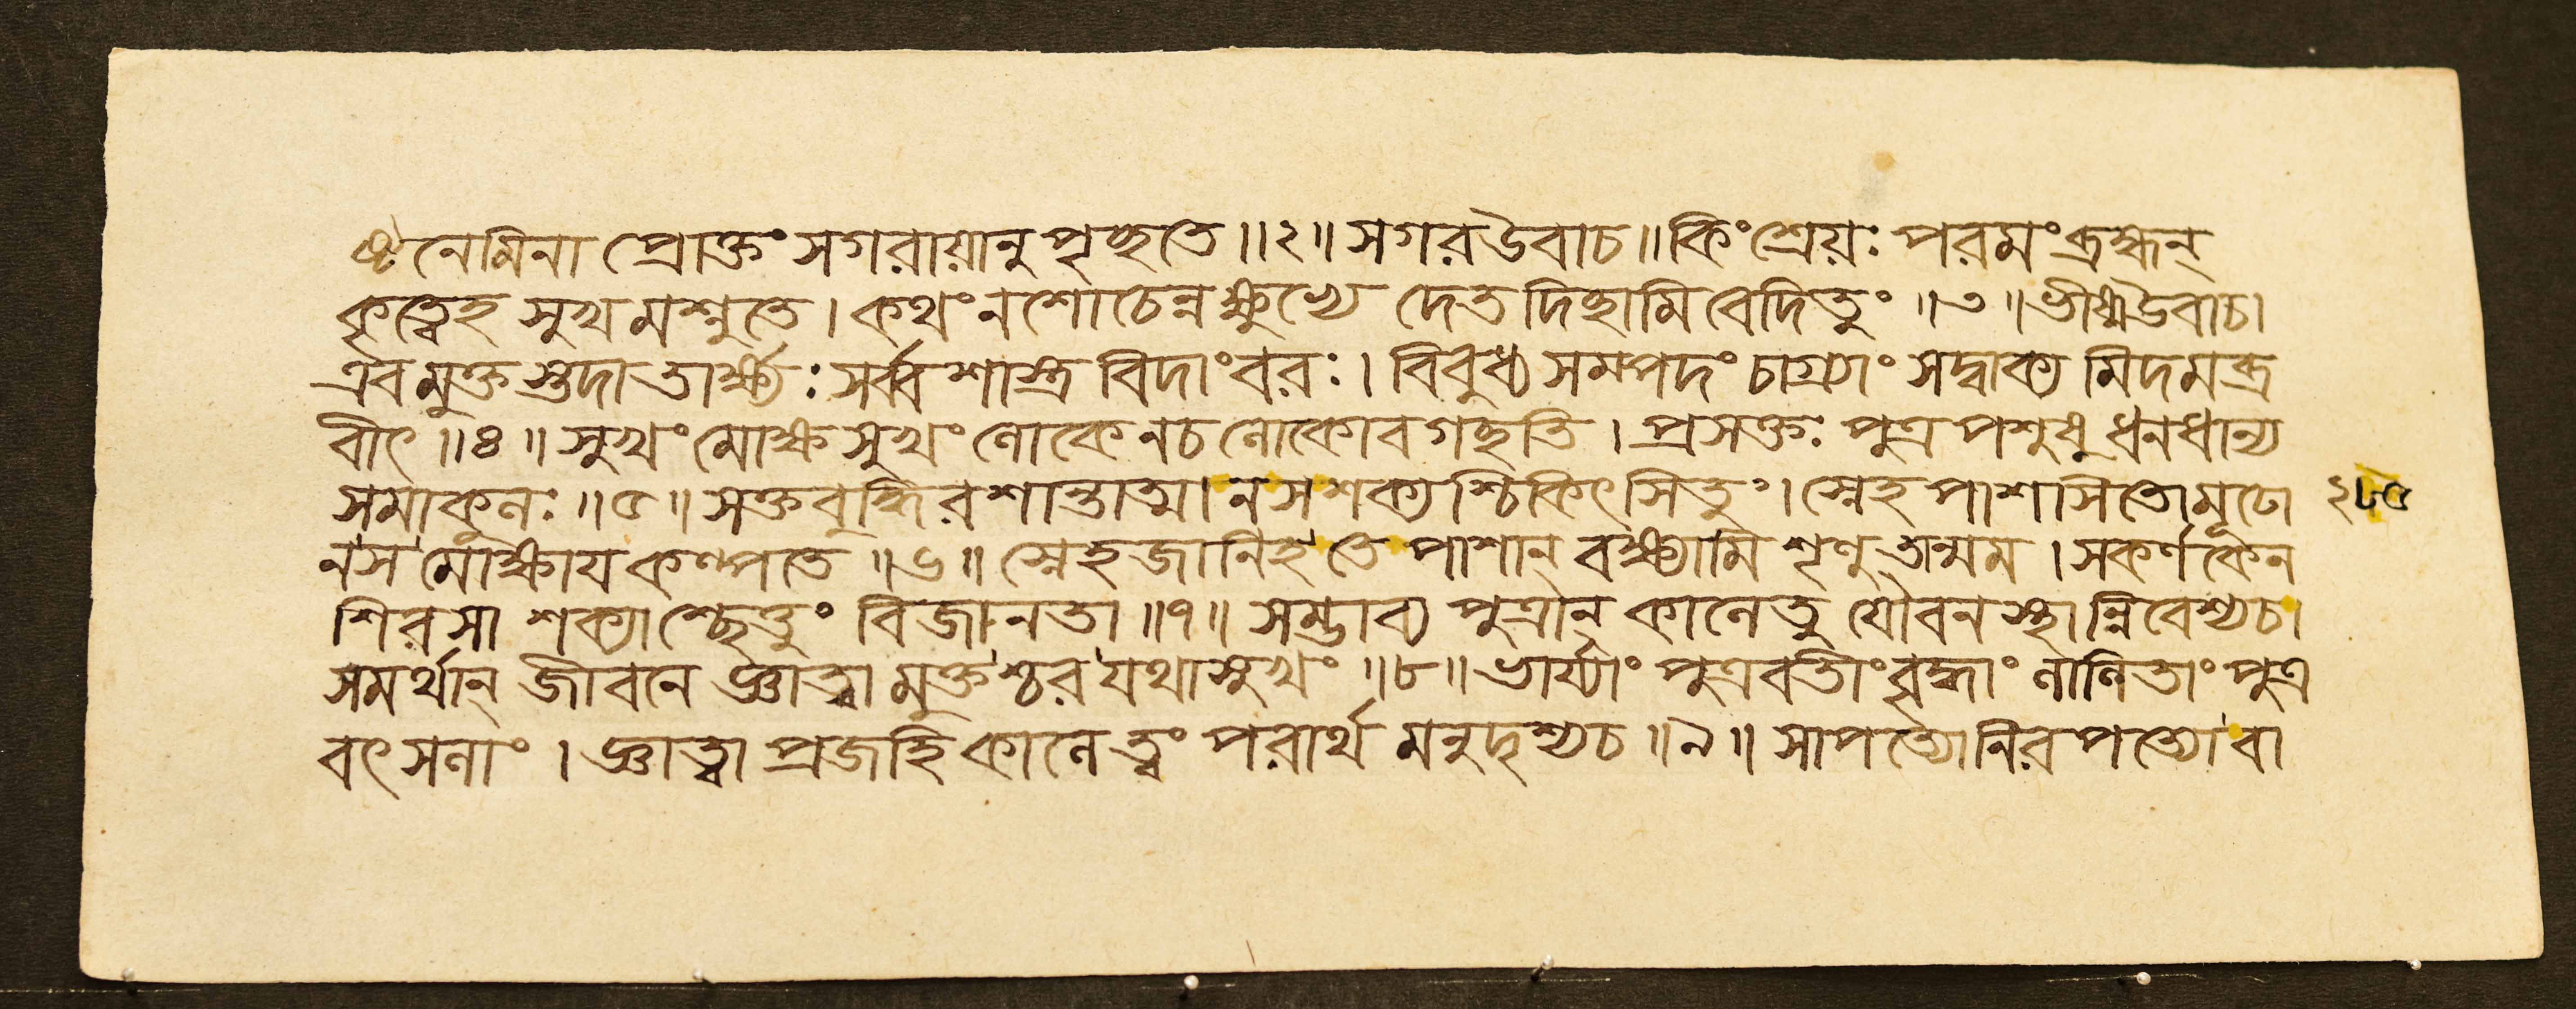 ষ্টনেমিনা প্রোক্তং সগরায়ানু পৃচ্ছতে ॥২॥ সগরউবাচ॥ কিং শ্রেয়ঃ পরমং ব্রহ্মন্
কৃত্বেহ সুখ মশ্নুতে। কথং নশোচেন্নক্ষুভ্যে দেত দিচ্ছামি বেদিতুং ॥৩॥ ভীষ্মউবাচ।
এব মুক্ত স্তদা তার্ক্ষ্যঃ সর্ব্ব শাস্ত্র বিদাং বরঃ। বিবুধ্য সম্পদং চাগ্র্যাং সদ্বাক্য মিদমব্র
বীৎ ॥৪॥ সুখং মোক্ষ সুখং লোকে নচ লোকোব গচ্ছতি। প্রসক্তঃ পুত্র পশুষু ধনধান্য
সমাকুলঃ ॥৫॥ সক্তবুদ্ধি রশান্তাত্মা নসশক্য শ্চিকিৎসিতুং। স্নেহ পাশাসিতোমূঢো ২৮৫
নস মোক্ষায কল্পতে ॥৬॥ স্নেহজানিহ তে পাশান্ বক্ষ্যামি শৃণু তান্মম। সকর্ণকেন
শিরসা শক্যাশ্ছেত্তুং বিজানতা ॥৭॥ সম্ভাব্য পুত্রান্ কালেতু যৌবনস্থান্নিবেশ্যচ।
সমর্থান্ জীবনে জ্ঞাত্বা মুক্তশ্চর যথাসুখং ॥৮॥ ভার্য্যাং পুত্রবতীং বৃদ্ধাং লালিতাং পুত্র
বৎসলাং। জ্ঞাত্বা প্রজহি কালেত্বং পরার্থ মনুদৃশ্যচ ॥৯॥ সাপত্যোনিরপত্যোবা